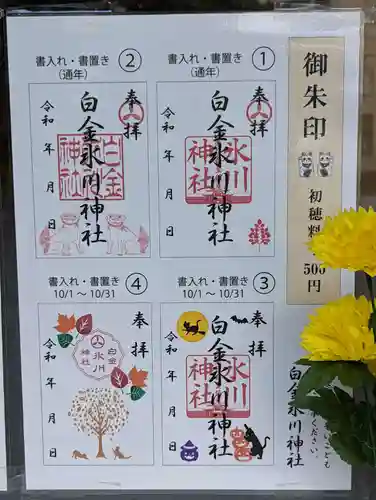 御朱印
初穂料
500円
書入れ・書置き ①
(通年)
奉拝
白金氷川神社
氷川神社
令和 年 月 日
書入れ・書置き ②
(通年)
奉拝
白金氷川神社
白金氷川神社
令和 年 月 日
書入れ・書置き ③
10/1～10/31
奉拝
白金氷川神社
氷川神社
令和 年 月 日
書入れ・書置き ④
10/1～10/31
奉拝
白金氷川神社
令和 年 月 日
ください。
白金氷川神社